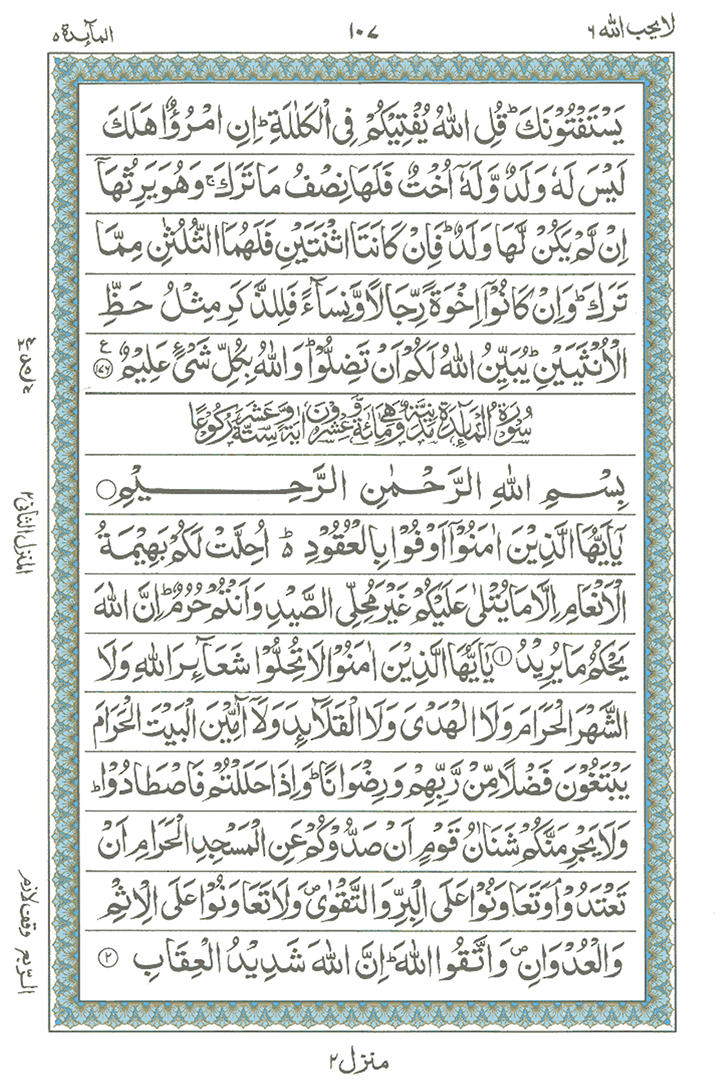 لا يحب الله ٦
١٠٧
المآئدة ٥
يَسْتَفْتُوْنَكَ ؕ قُلِ اللّٰهُ يُفْتِيْكُمْ فِى الْكَلٰلَةِ ؕ اِنِ امْرُؤٌا هَلَكَ
لَيْسَ لَهٗ وَلَدٌ وَّلَهٗۤ اُخْتٌ فَلَهَا نِصْفُ مَا تَرَكَ ۚ وَهُوَ يَرِثُهَاۤ
اِنْ لَّمْ يَكُنْ لَّهَا وَلَدٌ ؕ فَاِنْ كَانَتَا اثْنَتَيْنِ فَلَهُمَا الثُّلُثٰنِ مِمَّا
تَرَكَ ؕ وَاِنْ كَانُوْۤا اِخْوَةً رِّجَالًا وَّنِسَآءً فَلِلذَّكَرِ مِثْلُ حَظِّ
الْاُنْثَيَيْنِ ؕ يُبَيِّنُ اللّٰهُ لَكُمْ اَنْ تَضِلُّوْا ؕ وَاللّٰهُ بِكُلِّ شَىْءٍ عَلِيْمٌ ﴿۱۷۶﴾ ع
سُوْرَةُ الْمَآئِدَةِ مَدَنِيَّةٌ وَّهِىَ مِائَةٌ وَّعِشْرُوْنَ اٰيَةً وَّسِتَّةَ عَشَرَ رُكُوْعًا
بِسْمِ اللّٰهِ الرَّحْمٰنِ الرَّحِيْمِ ○
يٰۤاَيُّهَا الَّذِيْنَ اٰمَنُوْۤا اَوْفُوْا بِالْعُقُوْدِ ؕ اُحِلَّتْ لَكُمْ بَهِيْمَةُ
الْاَنْعَامِ اِلَّا مَا يُتْلٰى عَلَيْكُمْ غَيْرَ مُحِلِّى الصَّيْدِ وَاَنْتُمْ حُرُمٌ ؕ اِنَّ اللّٰهَ
يَحْكُمُ مَا يُرِيْدُ ﴿۱﴾ يٰۤاَيُّهَا الَّذِيْنَ اٰمَنُوْا لَا تُحِلُّوْا شَعَآئِرَ اللّٰهِ وَلَا
الشَّهْرَ الْحَرَامَ وَلَا الْهَدْىَ وَلَا الْقَلَآئِدَ وَلَاۤ آٰمِّيْنَ الْبَيْتَ الْحَرَامَ
يَبْتَغُوْنَ فَضْلًا مِّنْ رَّبِّهِمْ وَرِضْوَانًا ؕ وَاِذَا حَلَلْتُمْ فَاصْطَادُوْا ؕ
وَلَا يَجْرِمَنَّكُمْ شَنَاٰنُ قَوْمٍ اَنْ صَدُّوْكُمْ عَنِ الْمَسْجِدِ الْحَرَامِ اَنْ
تَعْتَدُوْا ۘ وَتَعَاوَنُوْا عَلَى الْبِرِّ وَالتَّقْوٰى ۪ وَلَا تَعَاوَنُوْا عَلَى الْاِثْمِ
وَالْعُدْوَانِ ۪ وَاتَّقُوا اللّٰهَ ؕ اِنَّ اللّٰهَ شَدِيْدُ الْعِقَابِ ﴿۲﴾
المنزل الثانى ۲
وقف لازم
الربع
منزل ۲